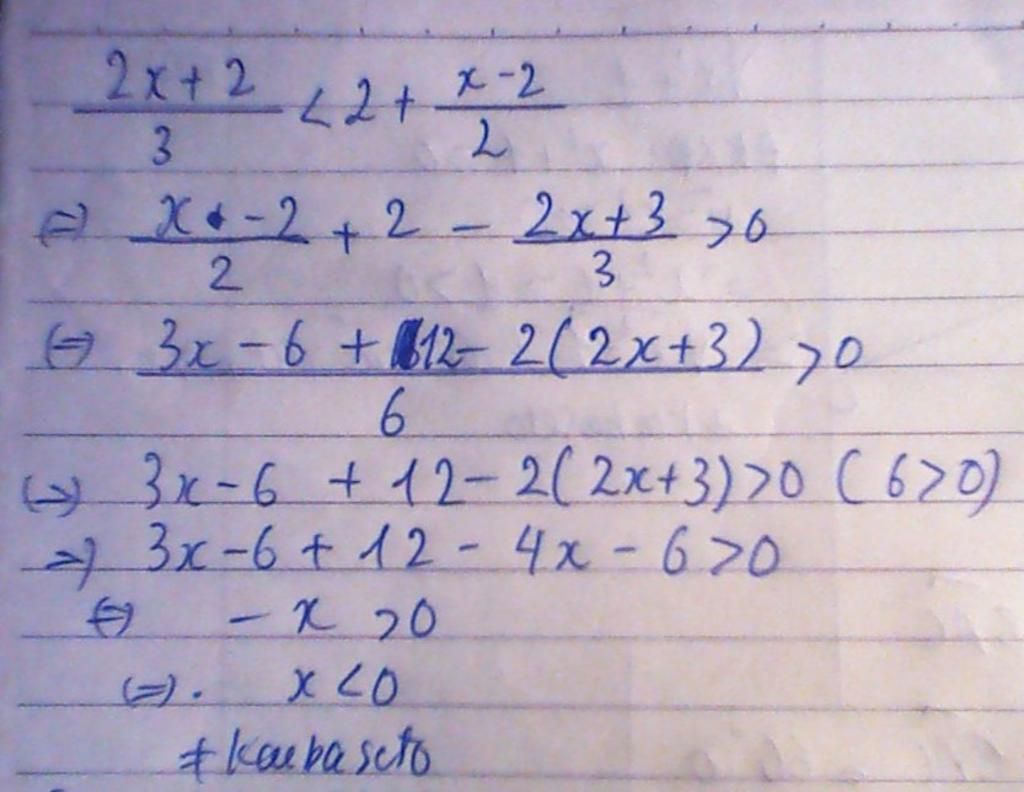 (2x+2)/3 < 2 + (x-2)/2
⇔ (x-2)/2 + 2 - (2x+3)/3 > 0
⇔ (3x-6+12-2(2x+3))/6 > 0
⇔ 3x-6+12-2(2x+3)>0 (6>0)
⇒ 3x-6+12-4x-6>0
⇔ -x >0
⇔. x<0